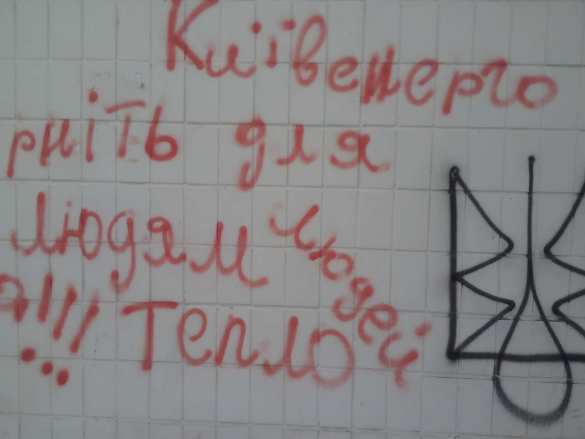 Київенерго
рніть для
людям людей
!!! тепло